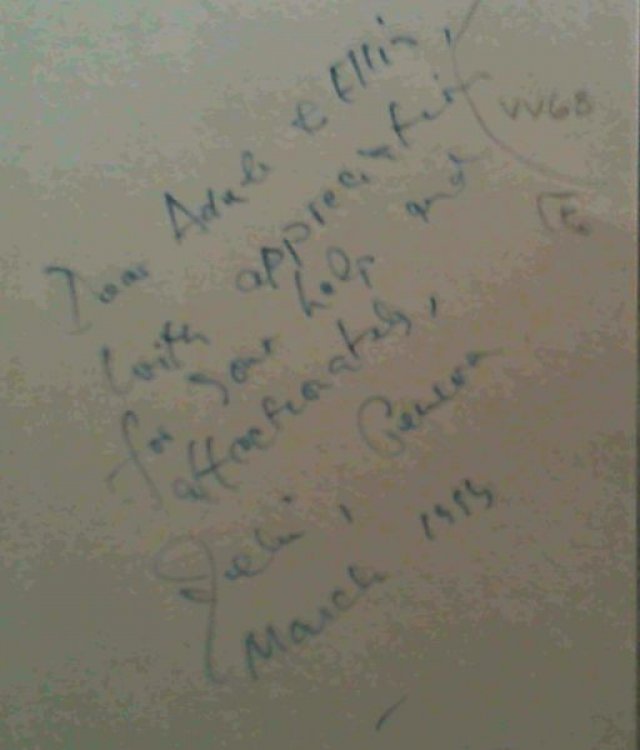 Dear Adele & Ellin,
with appreciation
for your help and
affectionately,
Geneva
March
VV68